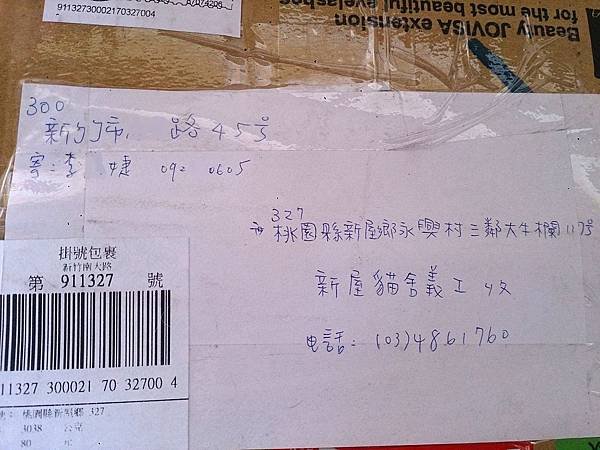 91132730002170327004
Beauty JOVISA extension
for the most beautiful eyelashes
300
新竹市 路45号
寄:李 婕 092 0605
327
桃園縣新屋鄉永興村三鄰大牛欄117号
新屋貓舍義工 收
电話:(03)4861760
掛號包裹
新竹南大路
第 911327 號
11327 300021 70 32700 4
桃園縣新屋鄉 327
3038 公克
80 元